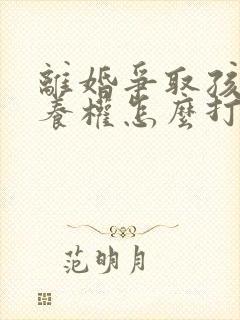 離婚爭取孩
養權怎麼打
范明月